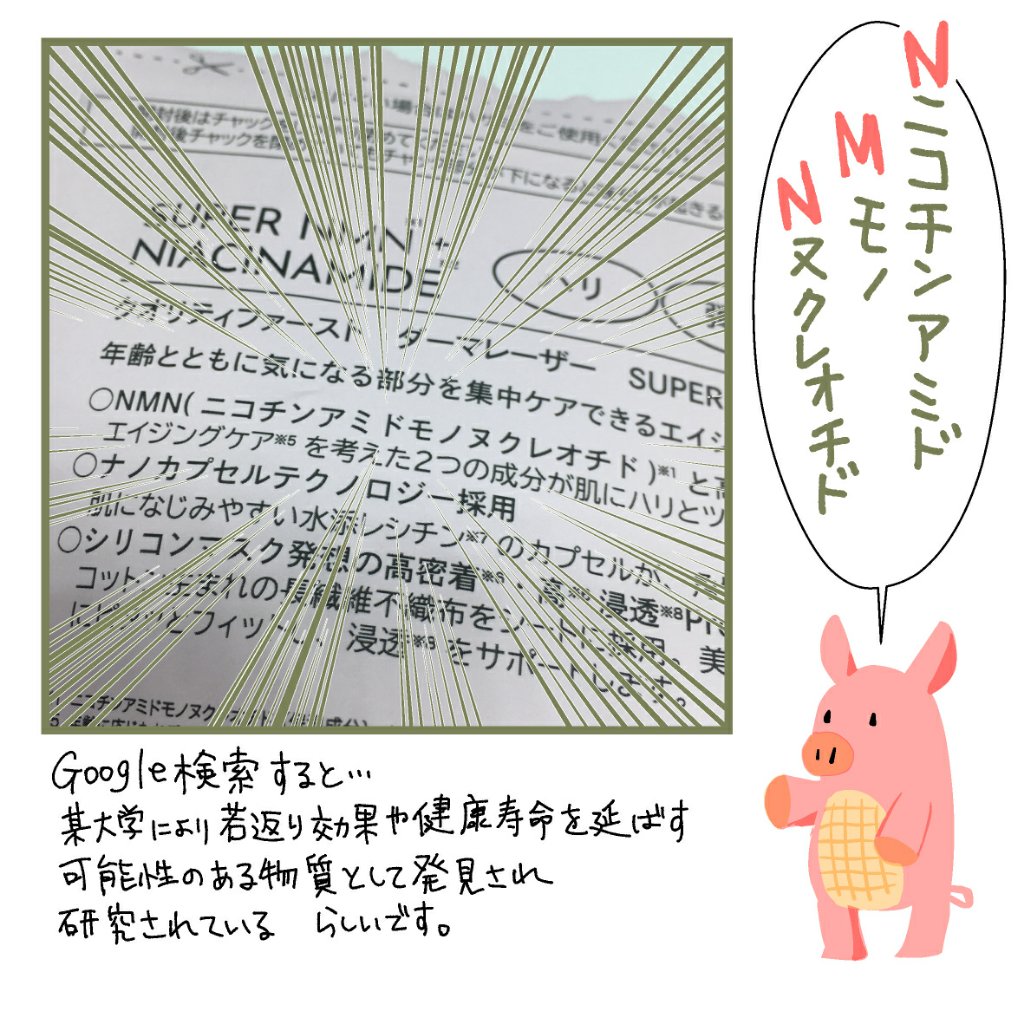 開封後はチャックを
開封後チャックを閉
SUPER NMN※1 +
NIACINAMIDE※2
ハリ
クオリティファースト ダーマレーザー SUPER
年齢とともに気になる部分を集中ケアできるエイジ
○NMN(ニコチンアミドモノヌクレオチド)※1と高
エイジングケア※5を考えた2つの成分が肌にハリとツ
○ナノカプセルテクノロジー採用
肌になじみやすい水添レシチン※7のカプセルが、
○シリコンマスク発想の高密着※8、高※6浸透※8Pr
コットン生まれの長繊維不織布をシートに採用。美
にピタッとフィットし、浸透※8をサポートします。
ニコチンアミドモノヌクレオチド
Nニコチンアミド
Mモノ
Nヌクレオチド
Google検索すると…
某大学により若返り効果や健康寿命を延ばす
可能性のある物質として発見され
研究されている らしいです。